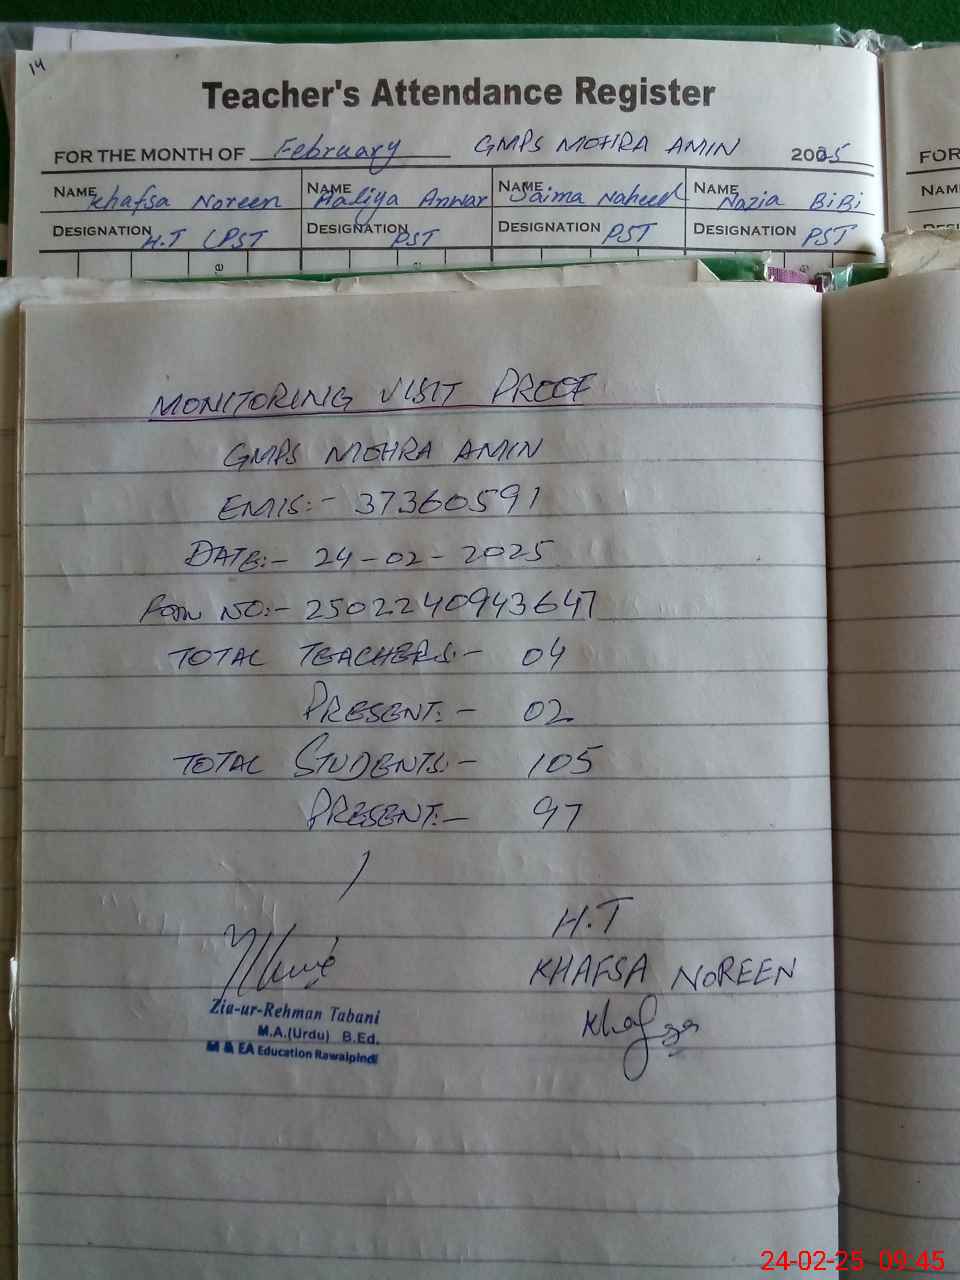 14
Teacher's Attendance Register
FOR THE MONTH OF February GMPS MOHRA AMIN 2025
FOR
NAME Khafsa Noreen NAME Aaliya Anwar NAME Saima Naheed NAME Nazia BiBi
NAM
DESIGNATION H.T (PST DESIGNATION PST DESIGNATION PST DESIGNATION PST
DES
MONITORING VISIT PROOF
GMPS MOHRA AMIN
EMIS:- 37360591
DATE:- 24-02-2025
FORM NO:- 2502240943647
TOTAL TEACHERS:- 04
PRESENT:- 02
TOTAL STUDENTS:- 105
PRESENT:- 97
H.T
KHAFSA NOREEN
Khafsa
Zia-ur-Rehman Tabani
M.A.(Urdu) B.Ed.
M & EA Education Rawalpindi
24-02-25 09:45